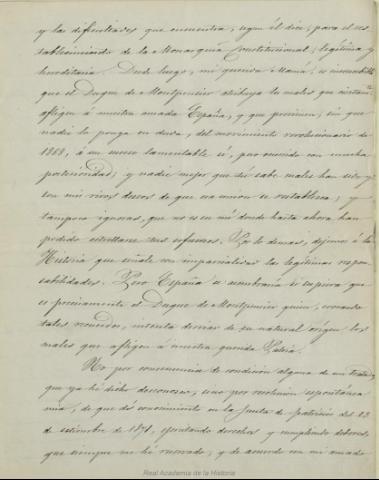 y las dificultades que encuentra, segun él dice, para el es-
tablecimiento de la Monarquia Constitucional, legítima y
hereditaria. Desde luego, mi querida Mamá, es
que el Duque de Montpensier atribuya los males que
afligen á nuestra amada España, y que provienen, sin que
nadie lo ponga en duda, del movimiento revolucionario de
1868, á un suceso lamentable sí, pero ocurrido con mucha
posterioridad; y nadie mejor que tú sabe cuales han sido y
son mis vivos deseos de que la union se restablezca; y
tampoco ignoras, que no es en mí donde hasta ahora han
podido estrellarse tus esfuerzos. Por lo demas, dejemos á la
Historia que señale con imparcialidad las legítimas respon-
sabilidades. Pero España se asombraria si supiera que
es precisamente el Duque de Montpensier quien, evocando
tales recuerdos, intenta desviar de su natural origen los
males que afligen á nuestra querida Patria.
No por consecuencia de condicion alguna de un tratado
que ya he dicho desconozco, sino por resolucion espontánea
mia, de que dí conocimiento en la Junta de patricios del 23
de setiembre de 1871, ejercitando derechos y cumpliendo deberes,
que siempre me he reservado, y de acuerdo con mi amado
Real Academia de la Historia